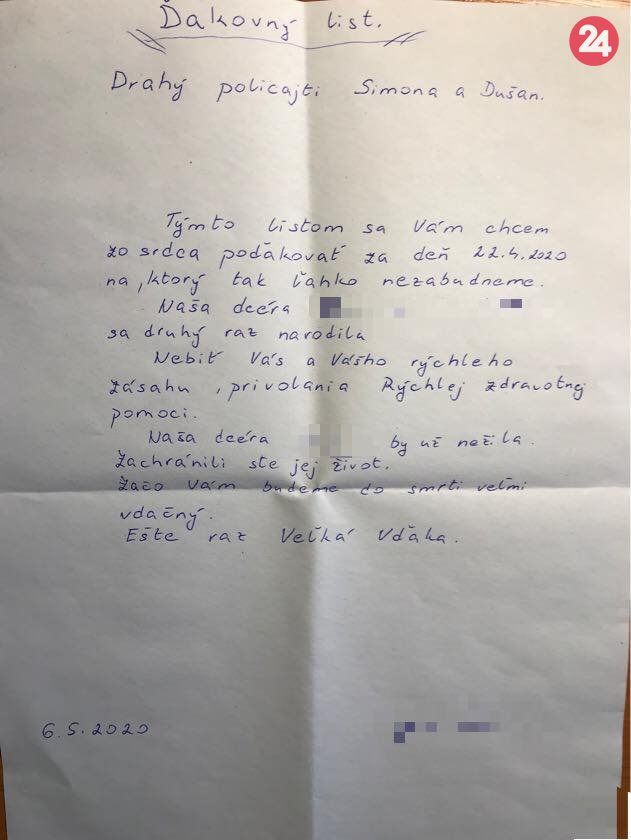 Ďakovný list.
24
Drahý policajti Simona a Dušan.
Týmto listom sa Vám chcem
zo srdca poďakovať za deň 22.4.2020
na, ktorý tak ľahko nezabudneme.
Naša dcéra
sa druhý raz narodila
Nebiť Vás a Vášho rýchleho
zásahu, privolania Rýchlej zdravotnej
pomoci.
Naša dcéra by už nežila.
Zachránili ste jej život.
Začo Vám budeme do smrti veľmi
vdačný.
Ešte raz Veľká Vďaka.
6.5.2020